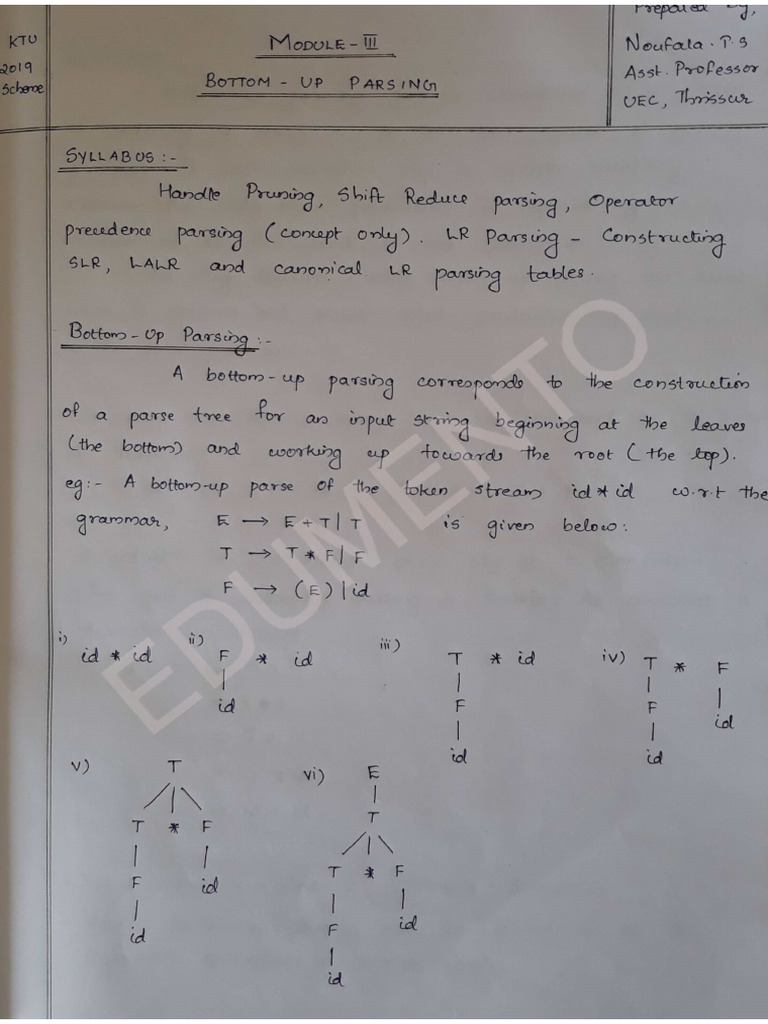 KTU
2019
Scheme
MODULE - III
BOTTOM - UP PARSING
Prepared by,
Noufala. P.S
Asst. Professor
UEC, Thrissur
SYLLABUS :-
Handle Pruning, Shift Reduce parsing, Operator
precedence parsing (concept only). LR Parsing - Constructing
SLR, LALR and canonical LR parsing tables.
Bottom-Up Parsing :-
A bottom-up parsing corresponds to the construction
of a parse tree for an input string beginning at the leaves
(the bottom) and working up towards the root (the top).
eg:- A bottom-up parse of the token stream id * id w.r.t the
grammar, E → E + T | T is given below:
T → T * F | F
F → (E) | id
i) id * id ii) F * id iii) T * id iv) T * F
id F F id
id id
v) T vi) E
T
T * F
T * F
F id
F id
id
id
EDUMENTO